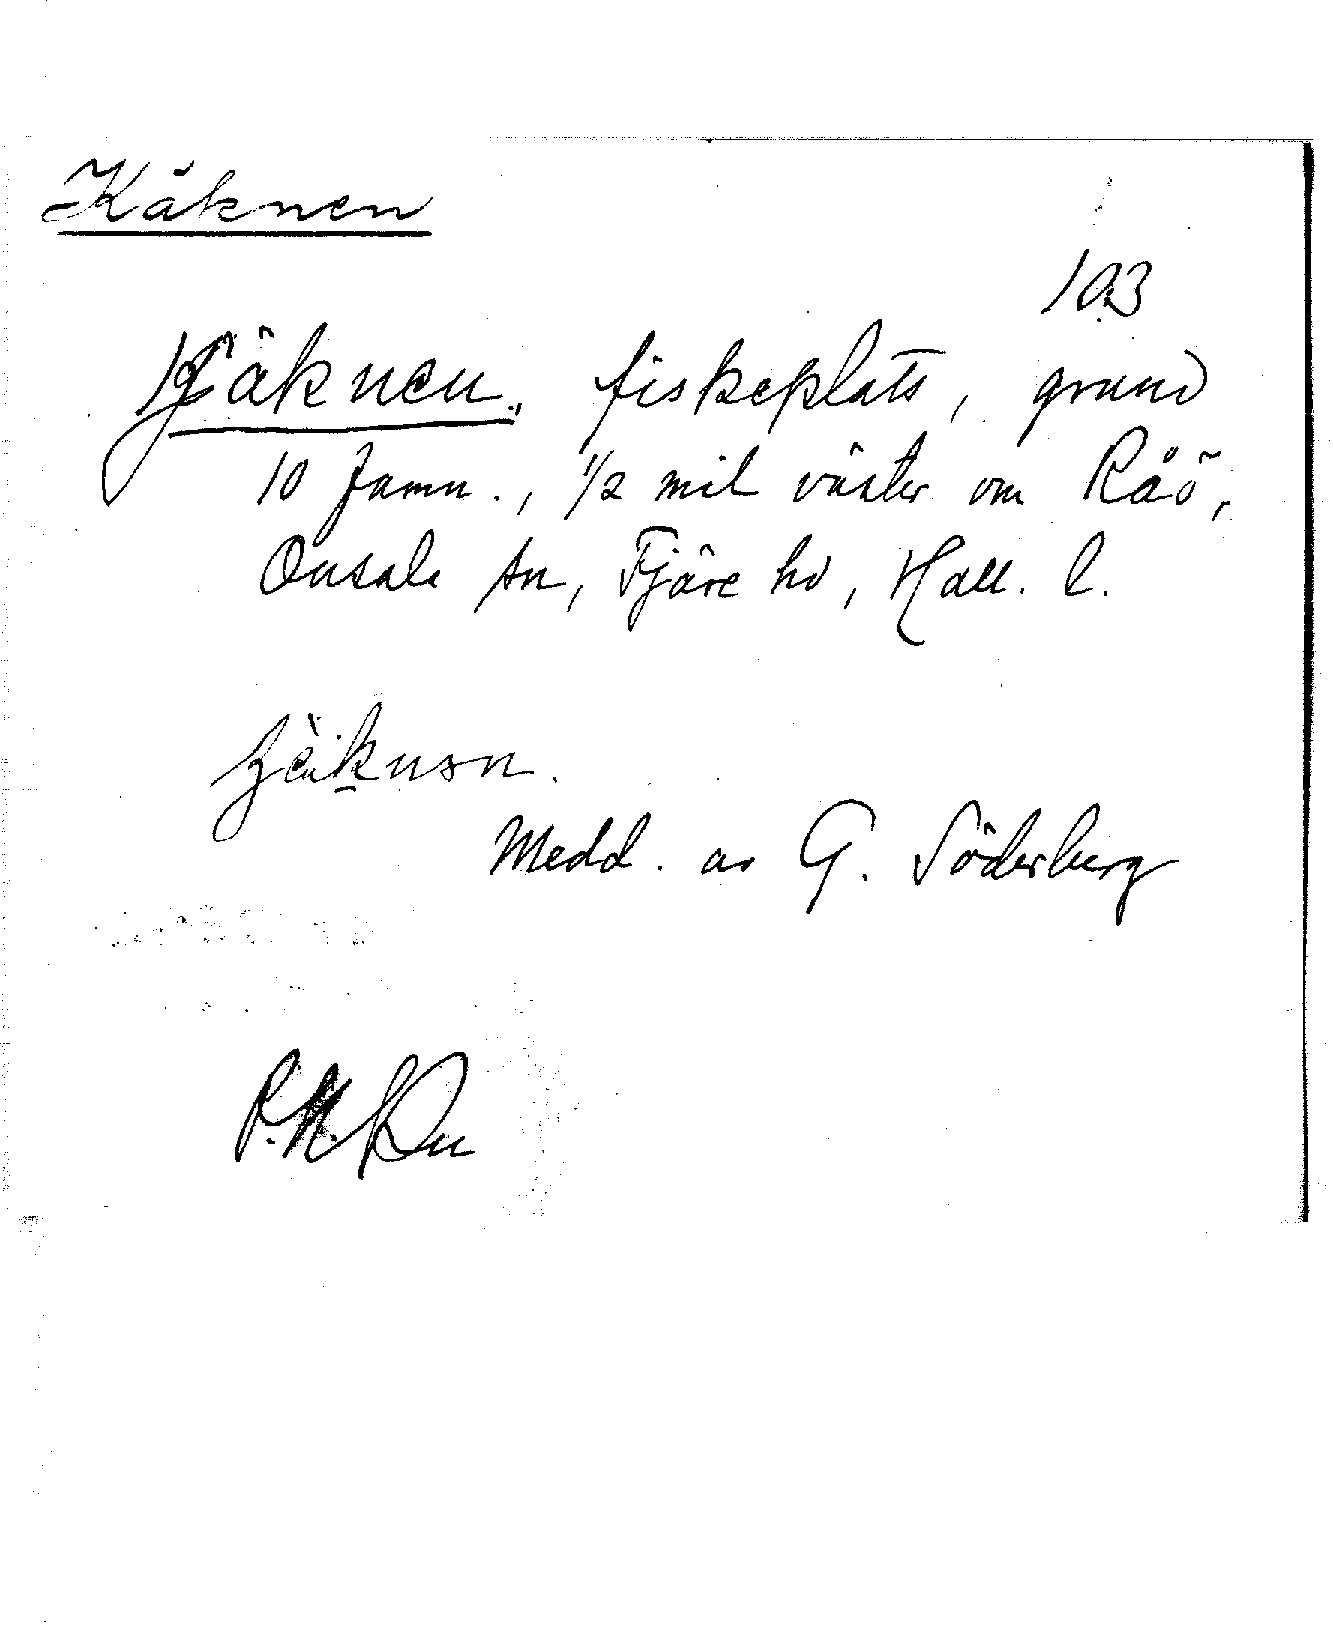 Käknen
193
Käknen, fiskeplats, grund
10 famn., 1/2 mil väster om Råö,
Onsala sn, Fjäre hd, Hall. l.
Medd. av G. Söderberg